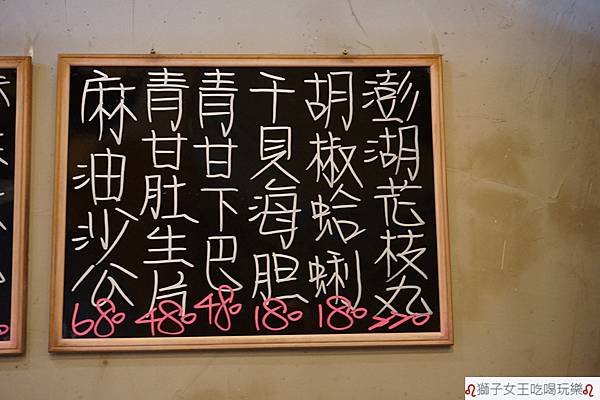 澎湖花枝丸 220
胡椒蛤蜊 180
干貝海胆 180
青甘下巴 480
青甘肚生片 480
麻油沙公 680
♌獅子女王吃喝玩樂♌